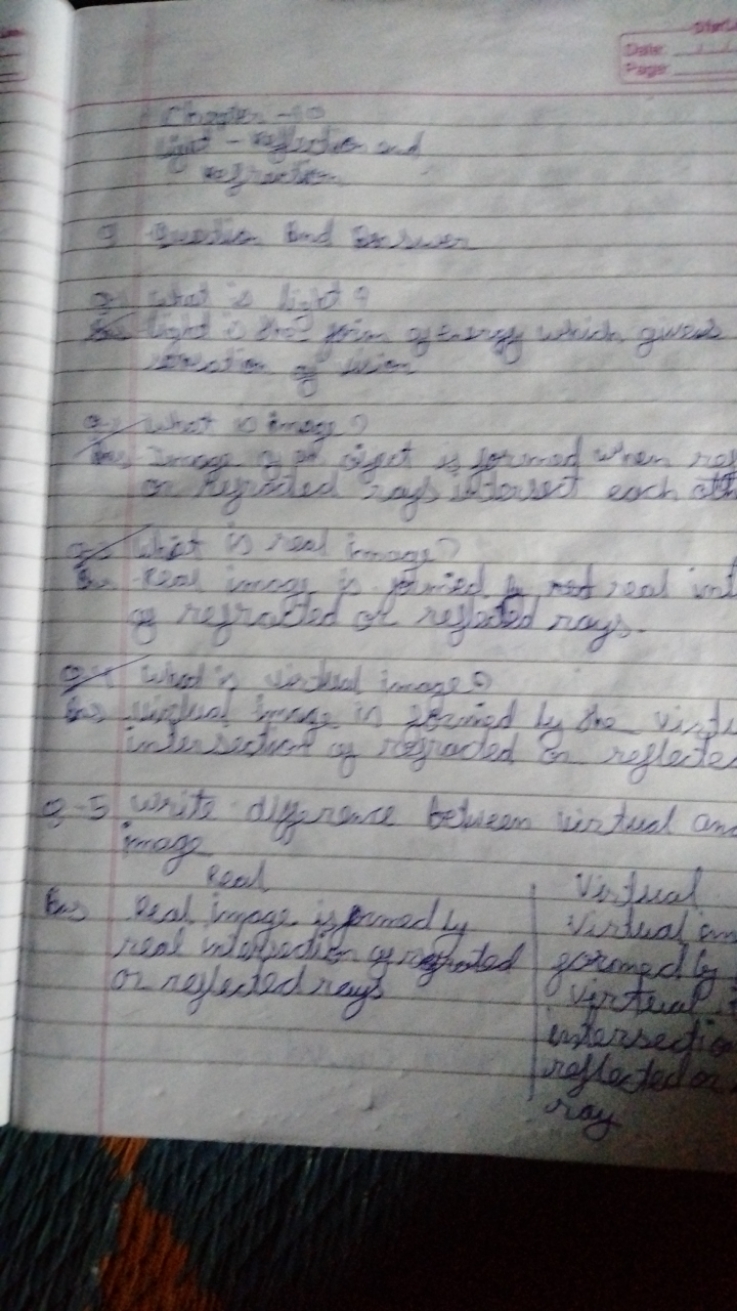 Date:
Page:
Chapter - 10
Light - reflection and
refraction
Question And Answer
What is light?
Light is the form of energy which gives
sensation of vision
What is image?
Ans Image of an object is formed when
or refracted rays intersect each
What is real image?
Ans Real image is formed by real
of refracted or reflected rays.
What is virtual image?
Ans virtual image is formed by the
intersection of refracted or
Q-5 Write difference between virtual
image
Real Virtual
Ans Real image is formed by
real intersection of refracted
or reflected rays
Virtual
formed by
virtual
intersection
reflected or
ray